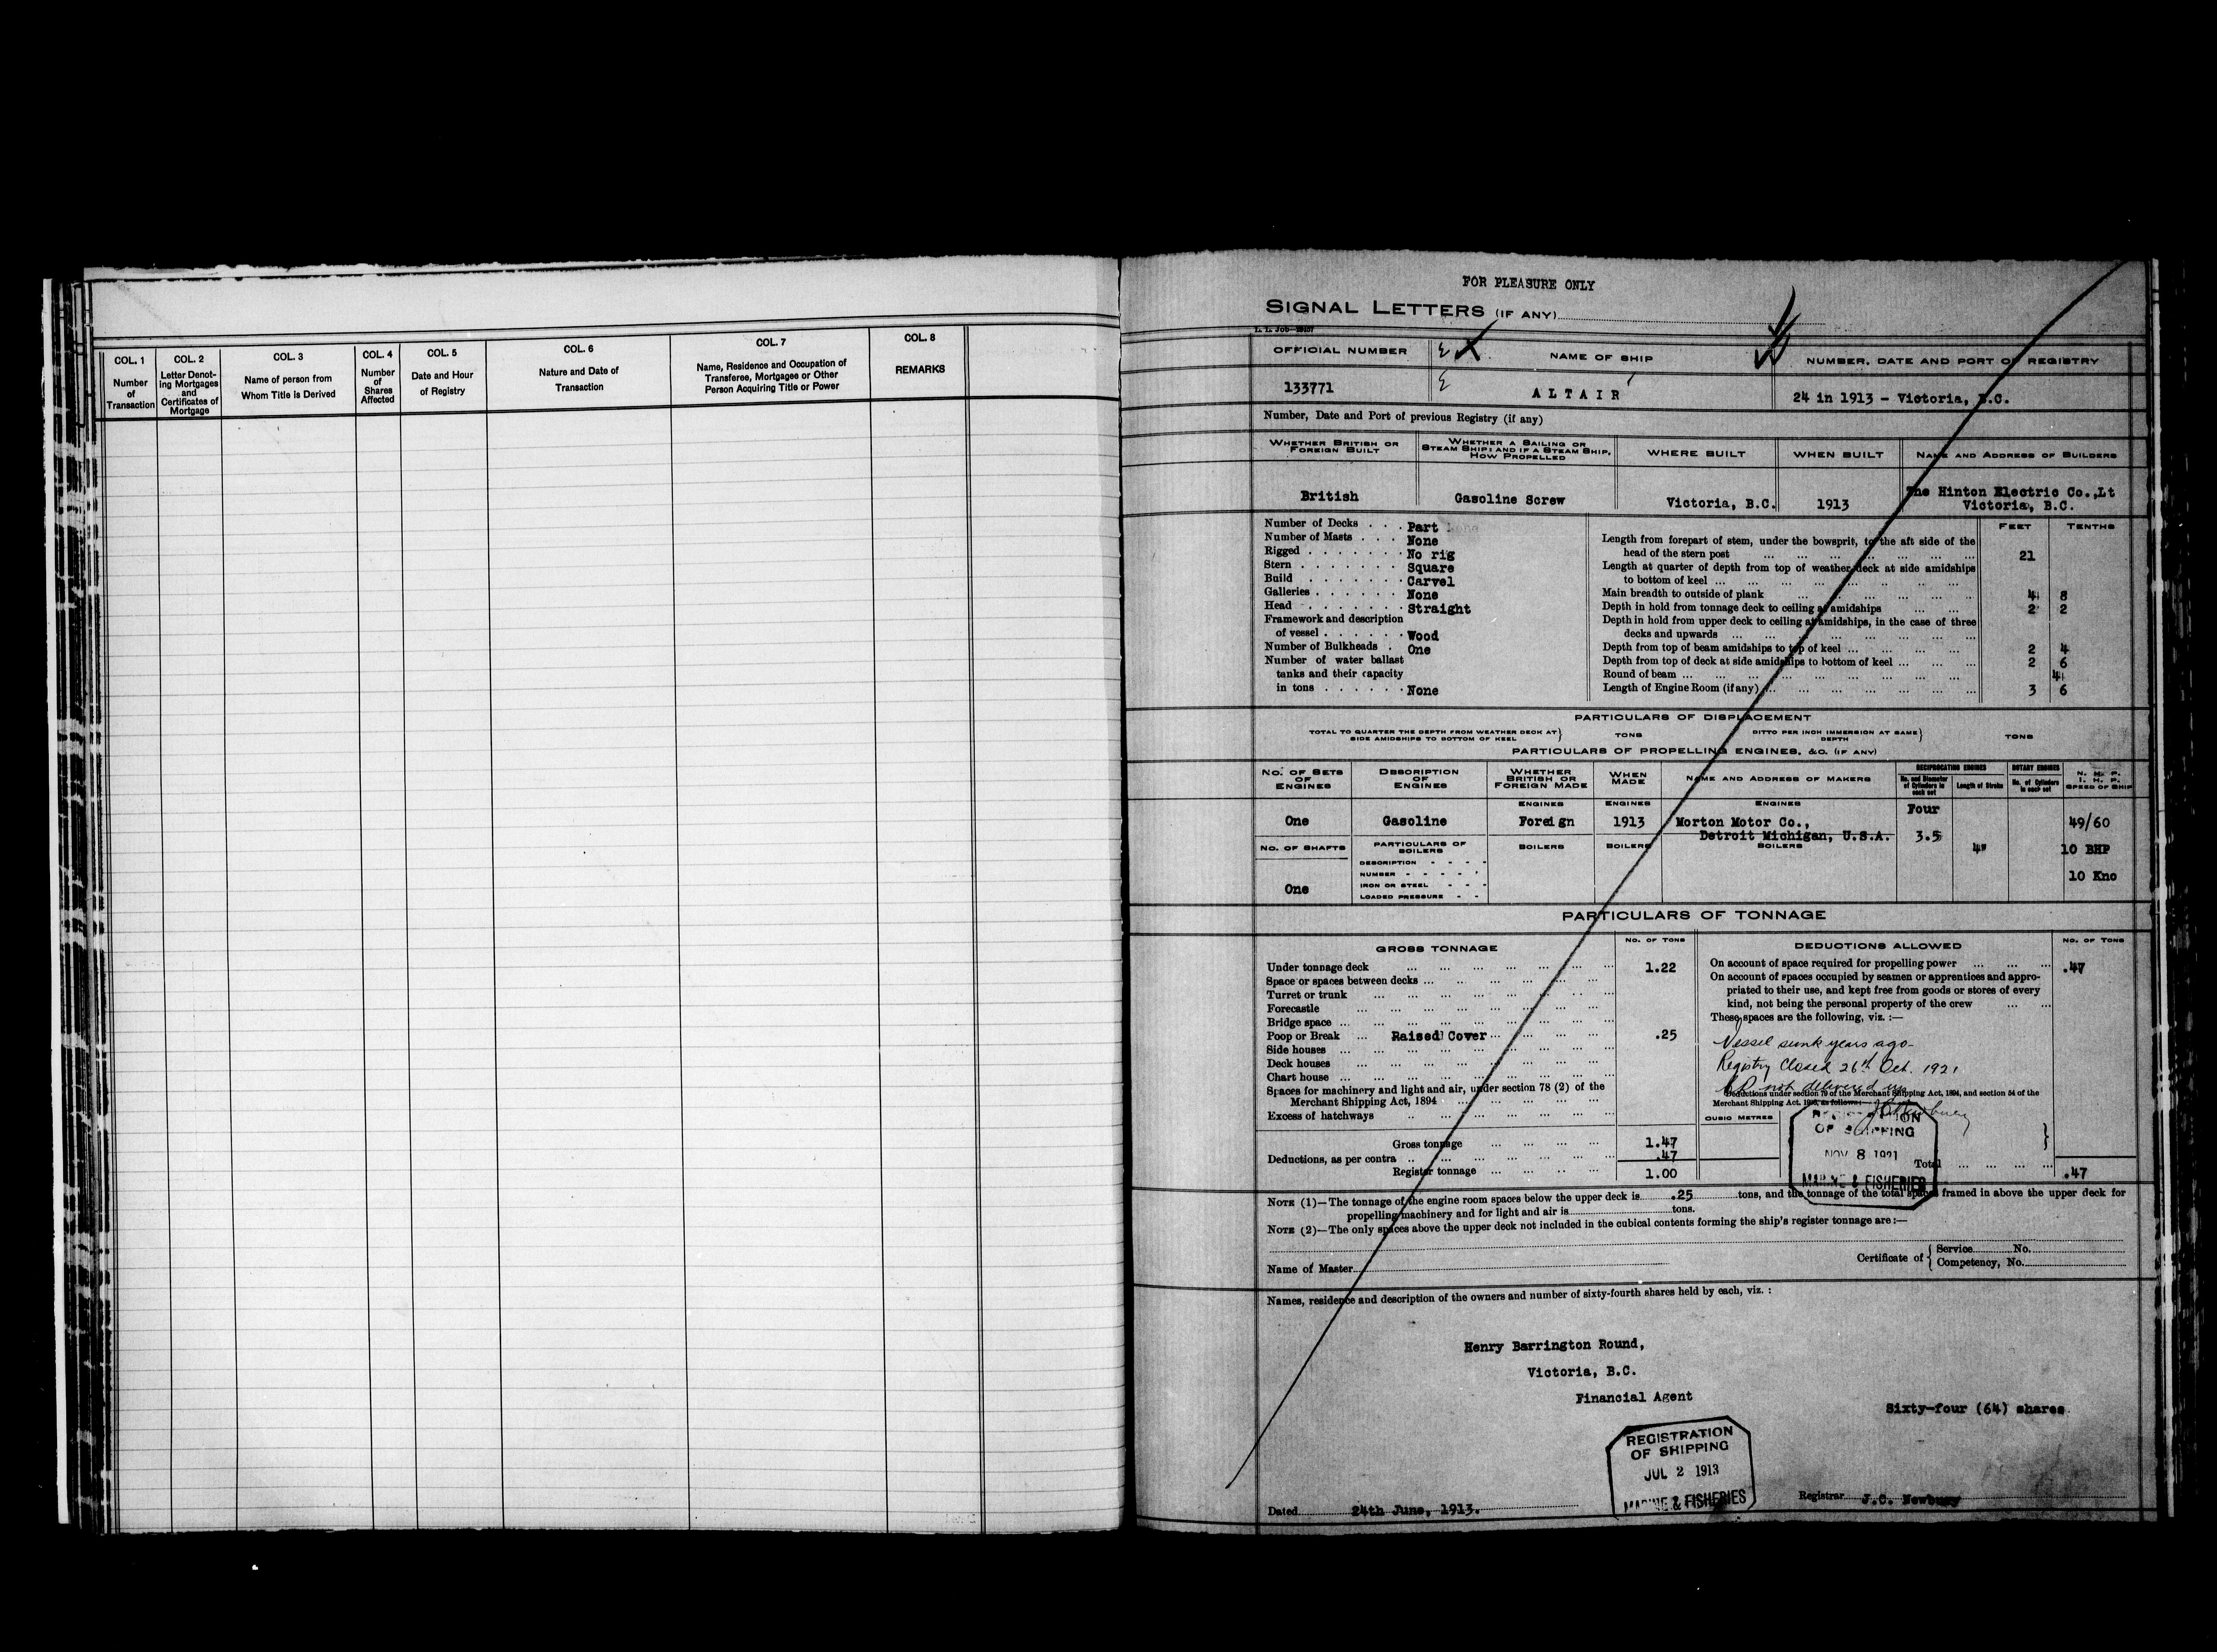 COL. 1
Number
of
Transaction
COL. 2
Letter Denot-
ing Mortgages
and
Certificates of
Mortgage
COL. 3
Name of person from
Whom Title is Derived
COL. 4
Number
of
Shares
Affected
COL. 5
Date and Hour
of Registry
COL. 6
Nature and Date of
Transaction
COL. 7
Name, Residence and Occupation of
Transferee, Mortgagee or Other
Person Acquiring Title or Power
COL. 8
REMARKS
FOR PLEASURE ONLY
SIGNAL LETTERS (IF ANY)
OFFICIAL NUMBER
NAME OF SHIP
NUMBER, DATE AND PORT OF REGISTRY
133771
ALTAIR
24 in 1913 - Victoria, B.C.
Number, Date and Port of previous Registry (if any)
WHETHER BRITISH OR
FOREIGN BUILT
WHETHER A SAILING OR
STEAM SHIP: AND IF A STEAM SHIP,
HOW PROPELLED
WHERE BUILT
WHEN BUILT
NAME AND ADDRESS OF BUILDERS
British
Gasoline Screw
Victoria, B.C.
1913
The Hinton Electric Co.,Lt
Victoria, B.C.
Number of Decks . . . Part
Number of Masts . . . None
Rigged . . . . . . . No rig
Stern . . . . . . . Square
Build . . . . . . . Carvel
Galleries . . . . . . None
Head . . . . . . . Straight
Framework and description
of vessel . . . . . . Wood
Number of Bulkheads . One
Number of water ballast
tanks and their capacity
in tons . . . . . . None
FEET TENTHS
Length from forepart of stem, under the bowsprit, to the aft side of the
head of the stern post 21
Length at quarter of depth from top of weather deck at side amidships
to bottom of keel
Main breadth to outside of plank 4 8
Depth in hold from tonnage deck to ceiling at amidships 2 2
Depth in hold from upper deck to ceiling at amidships, in the case of three
decks and upwards
Depth from top of beam amidships to top of keel 2 4
Depth from top of deck at side amidships to bottom of keel 2 6
Round of beam 4
Length of Engine Room (if any) 3 6
PARTICULARS OF DISPLACEMENT
TOTAL TO QUARTER THE DEPTH FROM WEATHER DECK AT
SIDE AMIDSHIPS TO BOTTOM OF KEEL } TONS
DITTO PER INCH IMMERSION AT SAME
DEPTH } TONS
PARTICULARS OF PROPELLING ENGINES, &C. (IF ANY)
NO. OF SETS
OF
ENGINES
DESCRIPTION
OF
ENGINES
WHETHER
BRITISH OR
FOREIGN MADE
WHEN
MADE
NAME AND ADDRESS OF MAKERS
RECIPROCATING ENGINES
No. and Diameter
of Cylinders in
each set
Length of Stroke
ROTARY ENGINES
No. of Cylinders
in each set
N. H. P.
I. H. P.
SPEED OF SHIP
ENGINES ENGINES ENGINES
One
Gasoline
Foreign
1913
Morton Motor Co.,
Detroit Michigan, U.S.A.
Four
3.5
4"
49/60
10 BHP
10 Kno
NO. OF SHAFTS
One
PARTICULARS OF
BOILERS
BOILERS BOILERS BOILERS
DESCRIPTION
NUMBER
IRON OR STEEL
LOADED PRESSURE
PARTICULARS OF TONNAGE
GROSS TONNAGE NO. OF TONS
Under tonnage deck 1.22
Space or spaces between decks
Turret or trunk
Forecastle
Bridge space
Poop or Break Raised Cover .25
Side houses
Deck houses
Chart house
Spaces for machinery and light and air, under section 78 (2) of the
Merchant Shipping Act, 1894
Excess of hatchways
Gross tonnage 1.47
Deductions, as per contra .47
Register tonnage 1.00
DEDUCTIONS ALLOWED NO. OF TONS
On account of space required for propelling power .47
On account of spaces occupied by seamen or apprentices and appro-
priated to their use, and kept free from goods or stores of every
kind, not being the personal property of the crew
These spaces are the following, viz. :—
Vessel sunk years ago-
Registry Closed 26th Oct. 1921
not delivered up
Deductions under section 79 of the Merchant Shipping Act, 1894, and section 54 of the
Merchant Shipping Act, 1906, as follows:—
CUBIC METRES
OF SHIPPING
NOV 8 1921
MARINE & FISHERIES
Total .47
NOTE (1)—The tonnage of the engine room spaces below the upper deck is .25 tons, and the tonnage of the total spaces framed in above the upper deck for
propelling machinery and for light and air is tons.
NOTE (2)—The only spaces above the upper deck not included in the cubical contents forming the ship's register tonnage are :—
Name of Master
Certificate of { Service No.
Competency, No.
Names, residence and description of the owners and number of sixty-fourth shares held by each, viz. :
Henry Barrington Round,
Victoria, B.C.
Financial Agent
Sixty-four (64) shares
REGISTRATION
OF SHIPPING
JUL 2 1913
MARINE & FISHERIES
Dated 24th June, 1913.
Registrar J.C. Newbury